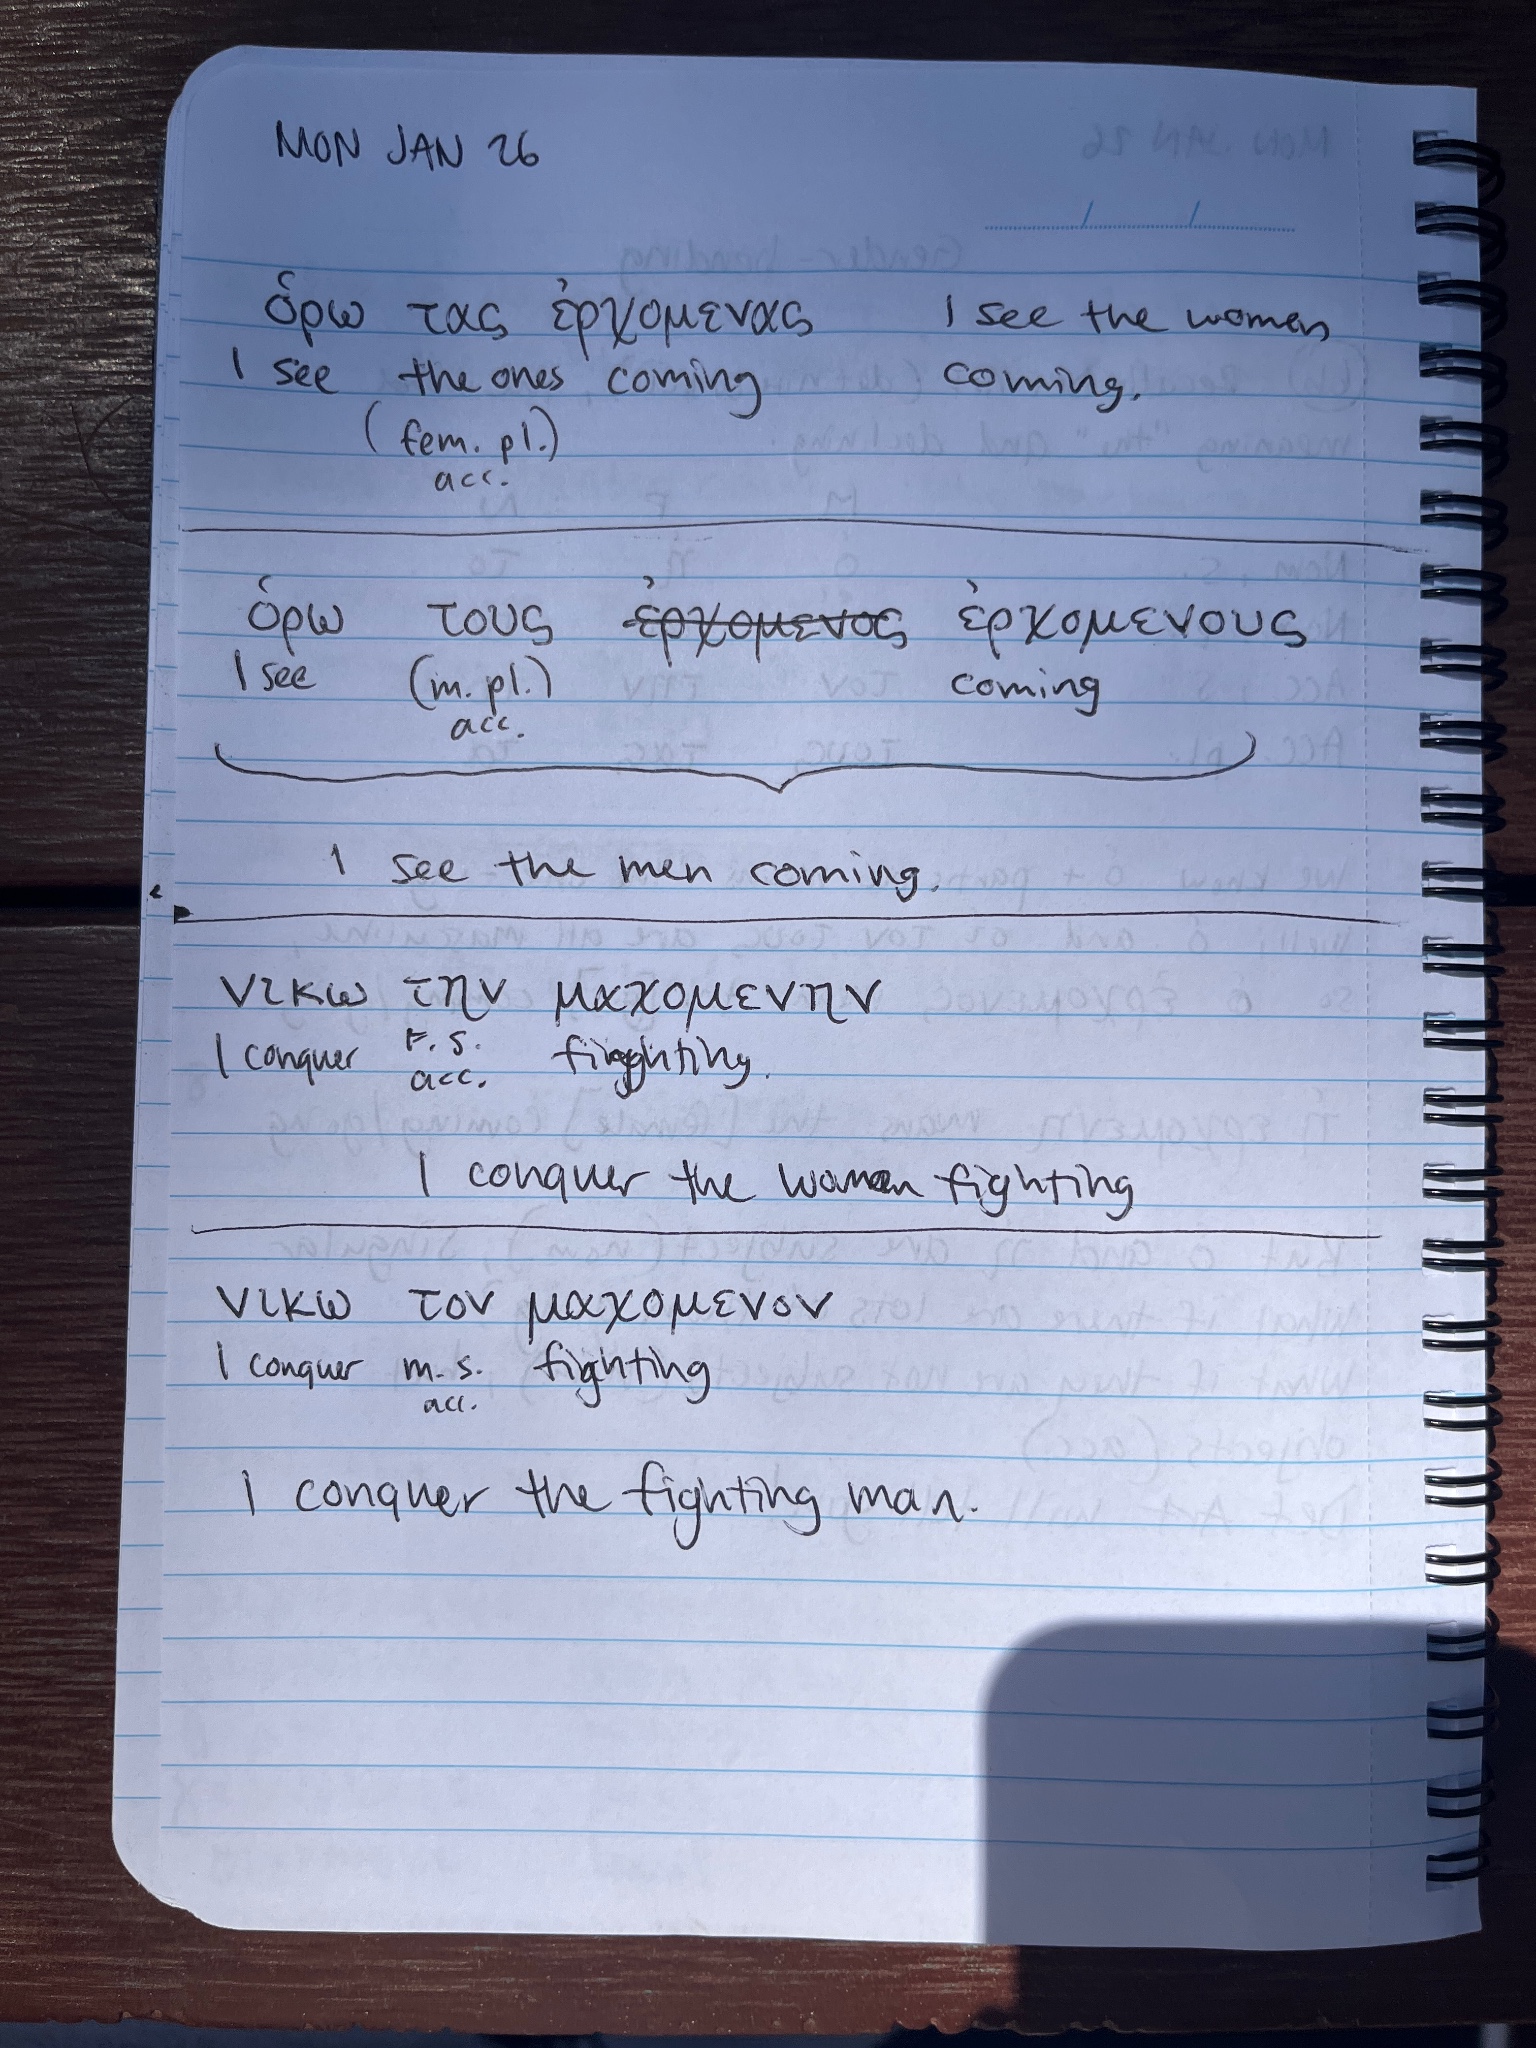 MON JAN 26
ὁρω τας ἐρχομενας I see the women
I see the ones coming coming.
(fem. pl.)
acc.
ὁρω τους ἐρχομενος ἐρχομενους
I see (m. pl.) coming
acc.
I see the men coming.
νικω την μαχομενην
I conquer F. S. fighting.
acc.
I conquer the woman fighting
νικω τον μαχομενον
I conquer m. s. fighting
acc.
I conquer the fighting man.